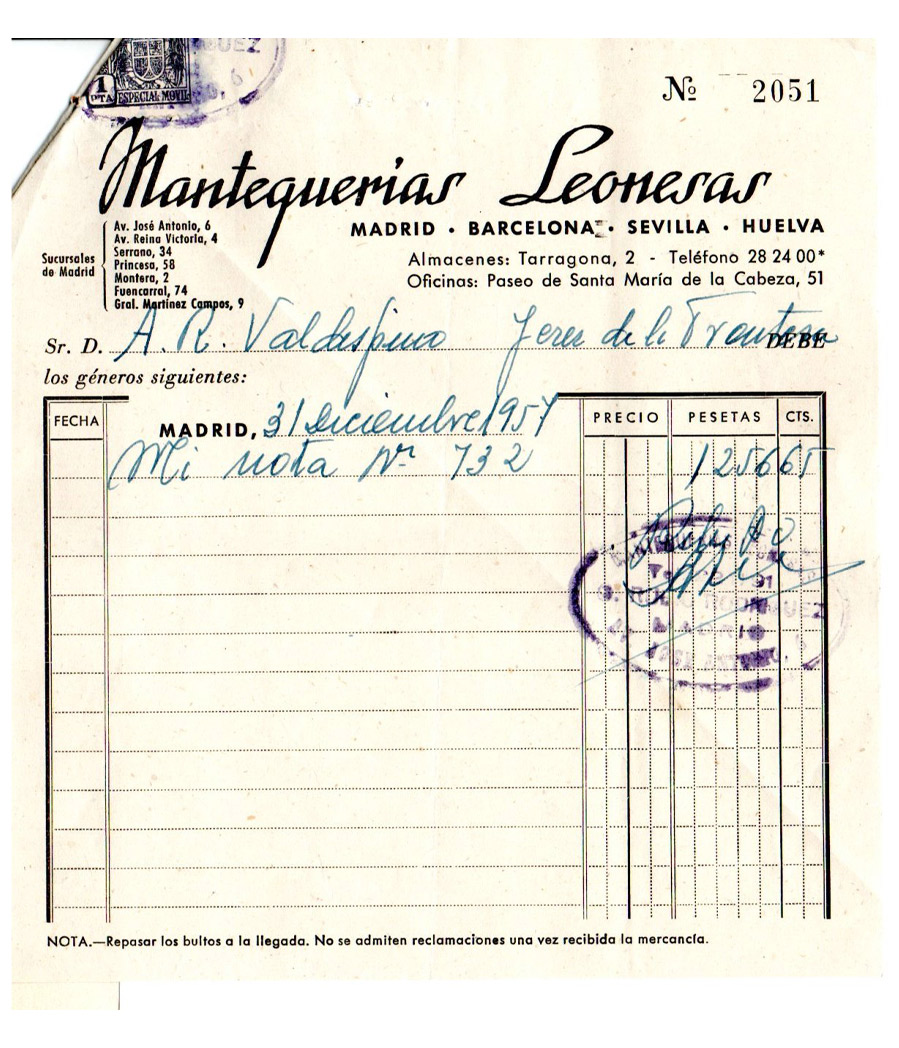 1
PTA
ESPECIAL MOVIL
Nº 2051
Mantequerias Leonesas
MADRID • BARCELONA • SEVILLA • HUELVA
Sucursales
de Madrid
Av. José Antonio, 6
Av. Reina Victoria, 4
Serrano, 34
Princesa, 58
Montera, 2
Fuencarral, 74
Gral. Martínez Campos, 9
Almacenes: Tarragona, 2 - Teléfono 28 24 00*
Oficinas: Paseo de Santa María de la Cabeza, 51
Sr. D. A. R. Valdespino Jerez de la Frontera DEBE
los géneros siguientes:
FECHA MADRID, 31 Diciembre 1957 PRECIO PESETAS CTS.
Mi nota Nº 732 1256 65
MADRID
NOTA.—Repasar los bultos a la llegada. No se admiten reclamaciones una vez recibida la mercancía.